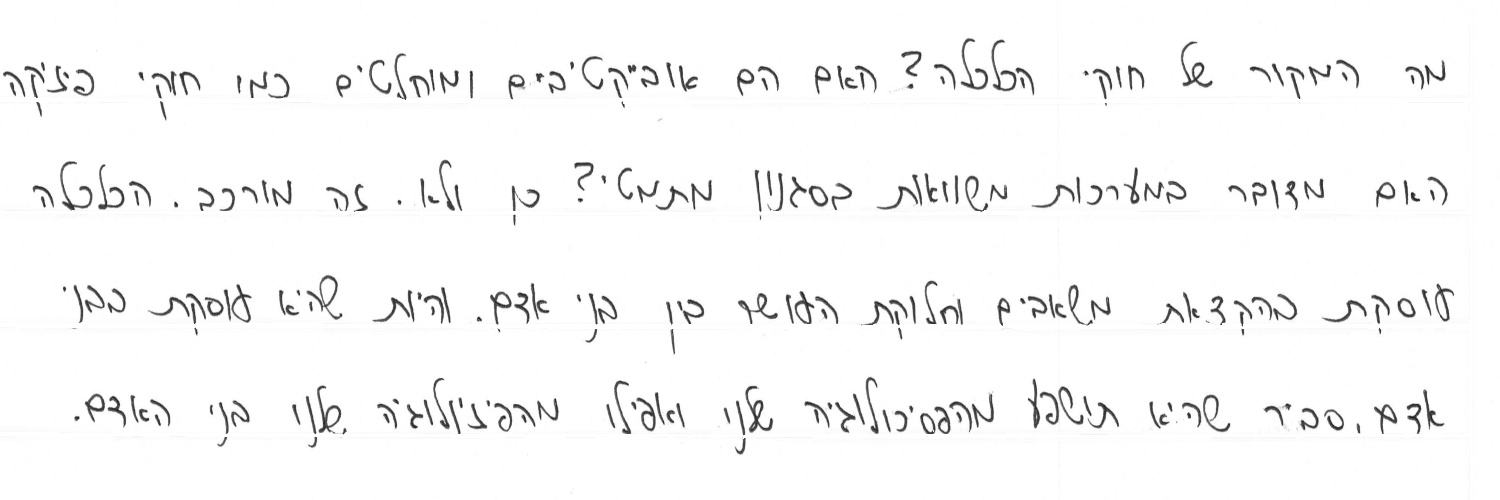 מה המקור של חוקי הכלכלה? האם הם אובייקטיביים ומוחלטים כמו חוקי פיזיקה
האם מדובר במערכות משוואות בסגנון מתמטי? כן ולא. זה מורכב. הכלכלה
עוסקת בהקצאת משאבים וחלוקת העושר בין בני אדם. והיות שהיא עוסקת בבני
אדם, סביר שהיא תושפע מהפסיכולוגיה שלנו ואפילו מהפיזיולוגיה שלנו בני האדם.